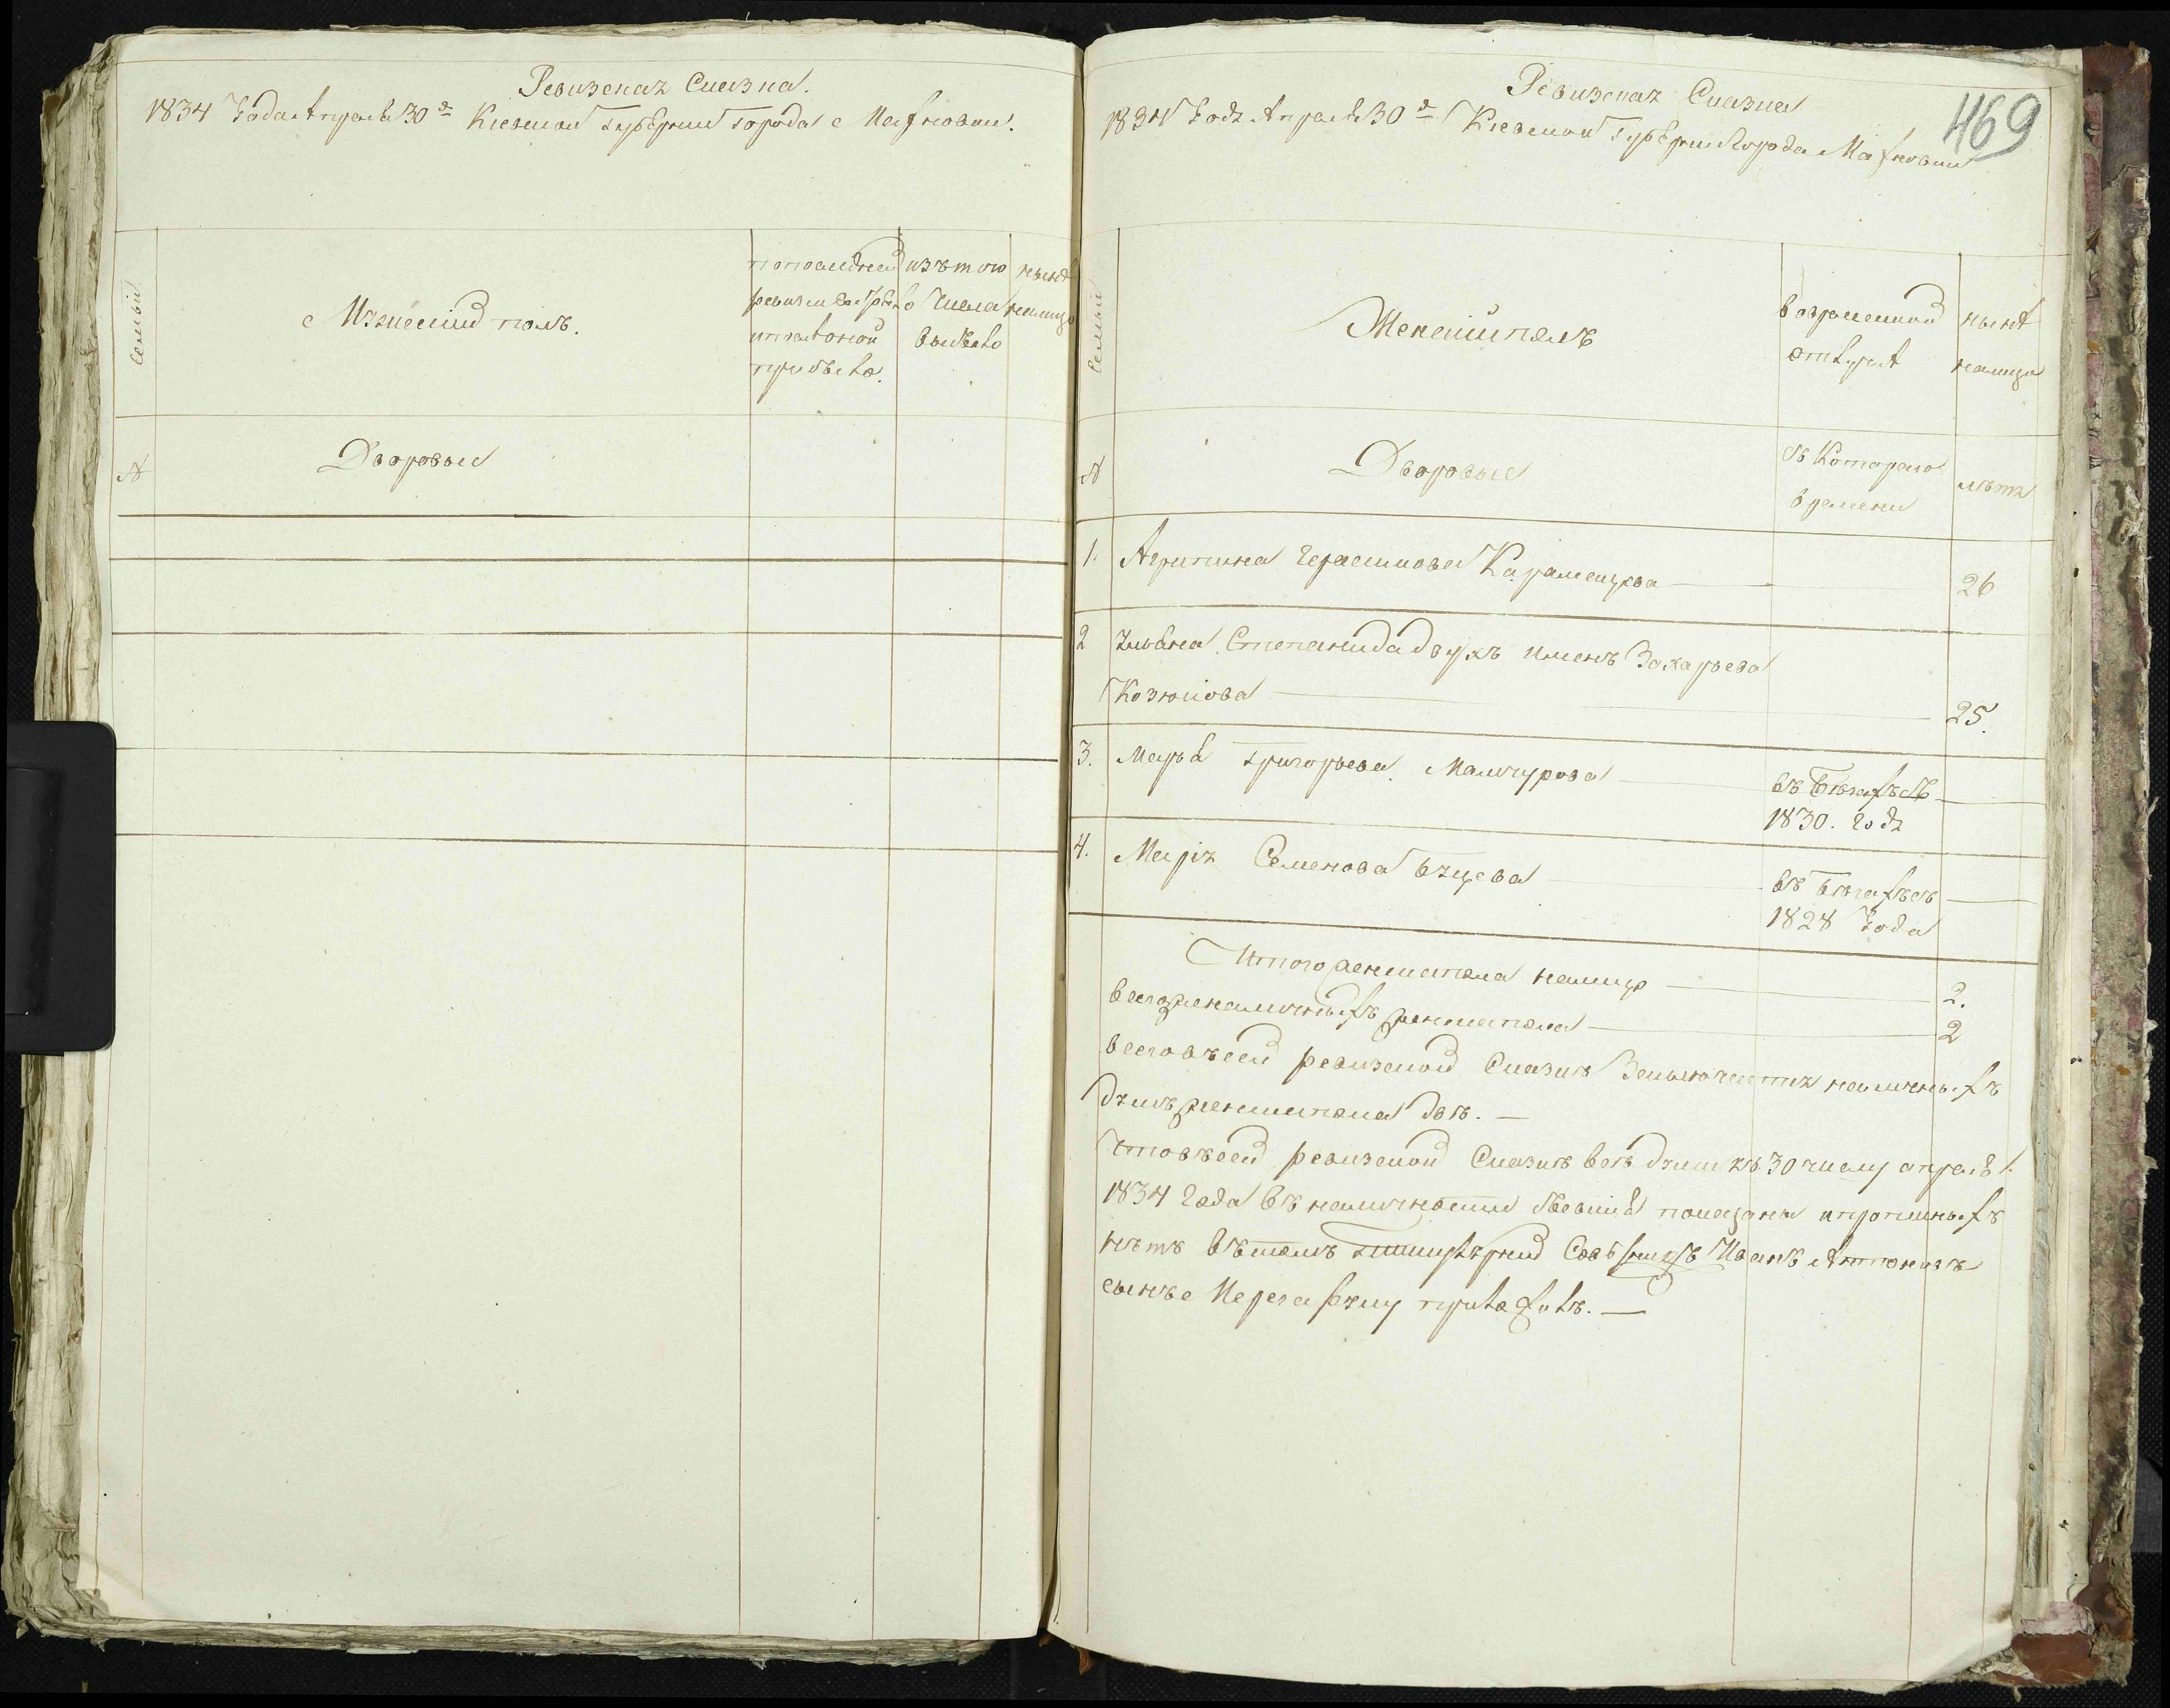 Ревизская Сказка.
1834 Года Апреля 30 д Киевской Губернии города Махновки.
Семьи
Мужескій полъ.
по последней
ревизии состояло
и после оной
прибыло.
изъ того
числа
выбыло
ныне
налицо
№
Дворовые
469
Ревизская Сказка
1834 Года Апреля 30 д Киевской Губернии Города Махновки
Семьи
Женскій полъ
во временной
отлучке
ныне
налицо
№
Дворовые
съ Котораго
времени
летъ
1. Агрипина Герасимова Карамещкова 26
2 Ульяна Степанида двухъ именъ Захарьева
Козюкова 25.
3. Марья Григорьева Манчурова въ Бегахъ съ
1830. Года
4. Марія Семенова въ Бегахъ съ
1828 Года
Итого женска пола налицо 2.
всего женаличныхъ женска пола 2
всего въ сей ревизской Сказке Заключается наличныхъ
душъ женска пола две.
Что въ сей ревизской Сказке все души къ 30 числу апреля
1834 Года въ наличности бывшія показаны и прописныхъ
нетъ въ томъ Иванъ Антоновъ
сынъ руку приложилъ.